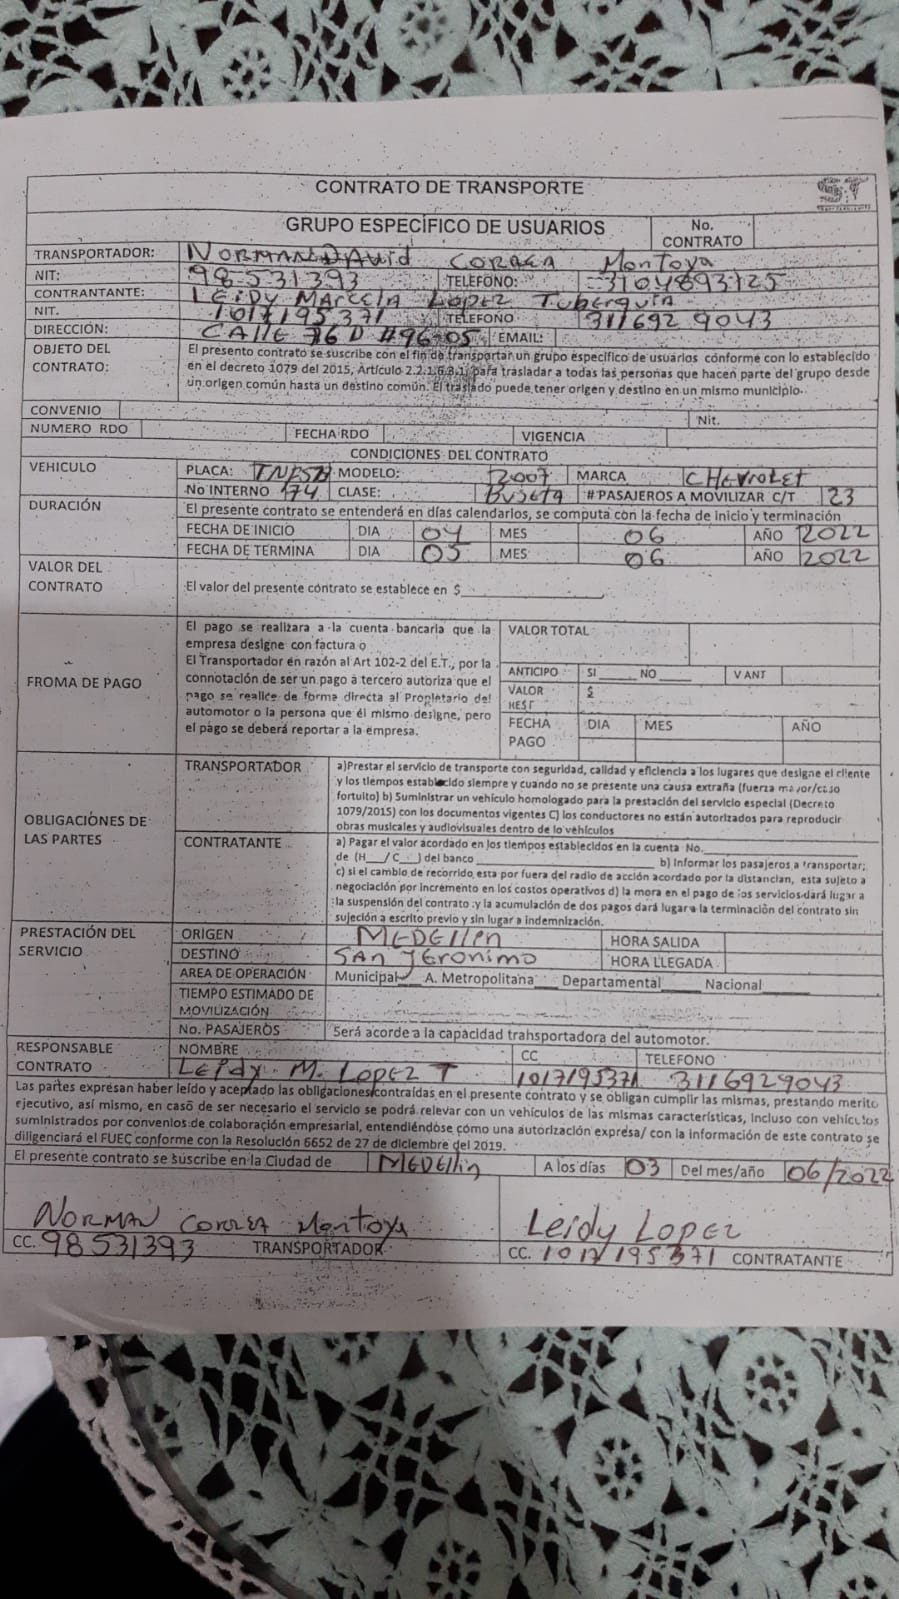 CONTRATO DE TRANSPORTE
GRUPO ESPECÍFICO DE USUARIOS No. CONTRATO
TRANSPORTADOR: NORMAN DAvid CORREA Montoya
NIT: 98-531393 TELEFONO: 3104893725
CONTRANTANTE: LEIDY MARCELA LOPEZ Tuberquia
NIT. 1017195371 TELEFONO 311692 9043
DIRECCIÓN: CALLE 76 D #96-05 EMAIL:
OBJETO DEL CONTRATO: El presento contrato se suscribe con el fin de transportar un grupo especifico de usuarios conforme con lo establecido
en el decreto 1079 del 2015, Artículo 2.2.1.6.3.1, para trasladar a todas las personas que hacen parte del grupo desde
un origen común hasta un destino común. El traslado puede tener origen y destino en un mismo municipio.
CONVENIO Nit.
NUMERO RDO FECHA RDO VIGENCIA
CONDICIONES DEL CONTRATO
VEHICULO PLACA: MODELO: 2007 MARCA CHEVROLET
No INTERNO 174 CLASE: BUSETA # PASAJEROS A MOVILIZAR C/T 23
DURACIÓN El presente contrato se entenderá en días calendarios, se computa con la fecha de inicio y terminación
FECHA DE INICIO DIA 04 MES 06 AÑO 2022
FECHA DE TERMINA DIA 05 MES 06 AÑO 2022
VALOR DEL CONTRATO El valor del presente contrato se establece en $
FROMA DE PAGO El pago se realizara a la cuenta bancaria que la
empresa designe con factura o
El Transportador en razón al Art 102-2 del E.T., por la
connotación de ser un pago a tercero autoriza que el
pago se realice de forma directa al Propietario del
automotor o la persona que él mismo designe, pero
el pago se deberá reportar a la empresa.
VALOR TOTAL
ANTICIPO SI NO V ANT
VALOR $
FECHA PAGO DIA MES AÑO
OBLIGACIONES DE LAS PARTES
TRANSPORTADOR a)Prestar el servicio de transporte con seguridad, calidad y eficiencia a los lugares que designe el cliente
y los tiempos establecido siempre y cuando no se presente una causa extraña (fuerza mayor/caso
fortuito) b) Suministrar un vehículo homologado para la prestación del servicio especial (Decreto
1079/2015) con los documentos vigentes C) los conductores no están autorizados para reproducir
obras musicales y audiovisuales dentro de lo vehículos
CONTRATANTE a) Pagar el valor acordado en los tiempos establecidos en la cuenta No.
de (H__/ C__) del banco b) Informar los pasajeros a transportar;
c) si el cambio de recorrido esta por fuera del radio de acción acordado por la distancian, esta sujeto a
negociación por incremento en los costos operativos d) la mora en el pago de los servicios dará lugar a
la suspensión del contrato y la acumulación de dos pagos dará lugar a la terminación del contrato sin
sujeción a escrito previo y sin lugar a indemnización.
PRESTACIÓN DEL SERVICIO ORIGEN MEDELLIN HORA SALIDA
DESTINO SAN JERONIMO HORA LLEGADA
AREA DE OPERACIÓN Municipal A. Metropolitana Departamental Nacional
TIEMPO ESTIMADO DE MOVILIZACIÓN
No. PASAJEROS Será acorde a la capacidad transportadora del automotor.
RESPONSABLE CONTRATO NOMBRE CC TELEFONO
LEIDY M. LOPEZ T 1017195371 3116929043
Las partes expresan haber leído y aceptado las obligaciones contraídas en el presente contrato y se obligan cumplir las mismas, prestando merito
ejecutivo, así mismo, en casó de ser necesario el servicio se podrá relevar con un vehículos de las mismas características, incluso con vehículos
suministrados por convenios de colaboración empresarial, entendiéndose como una autorización expresa/ con la información de este contrato se
diligenciará el FUEC conforme con la Resolución 6652 de 27 de diciembre del 2019.
El presente contrato se suscribe en la Ciudad de MEDELLIN A los días 03 Del mes/año 06/2022
NORMAN CORREA Montoya Leidy LOPEZ
CC. 98531393 TRANSPORTADOR CC. 1017195371 CONTRATANTE